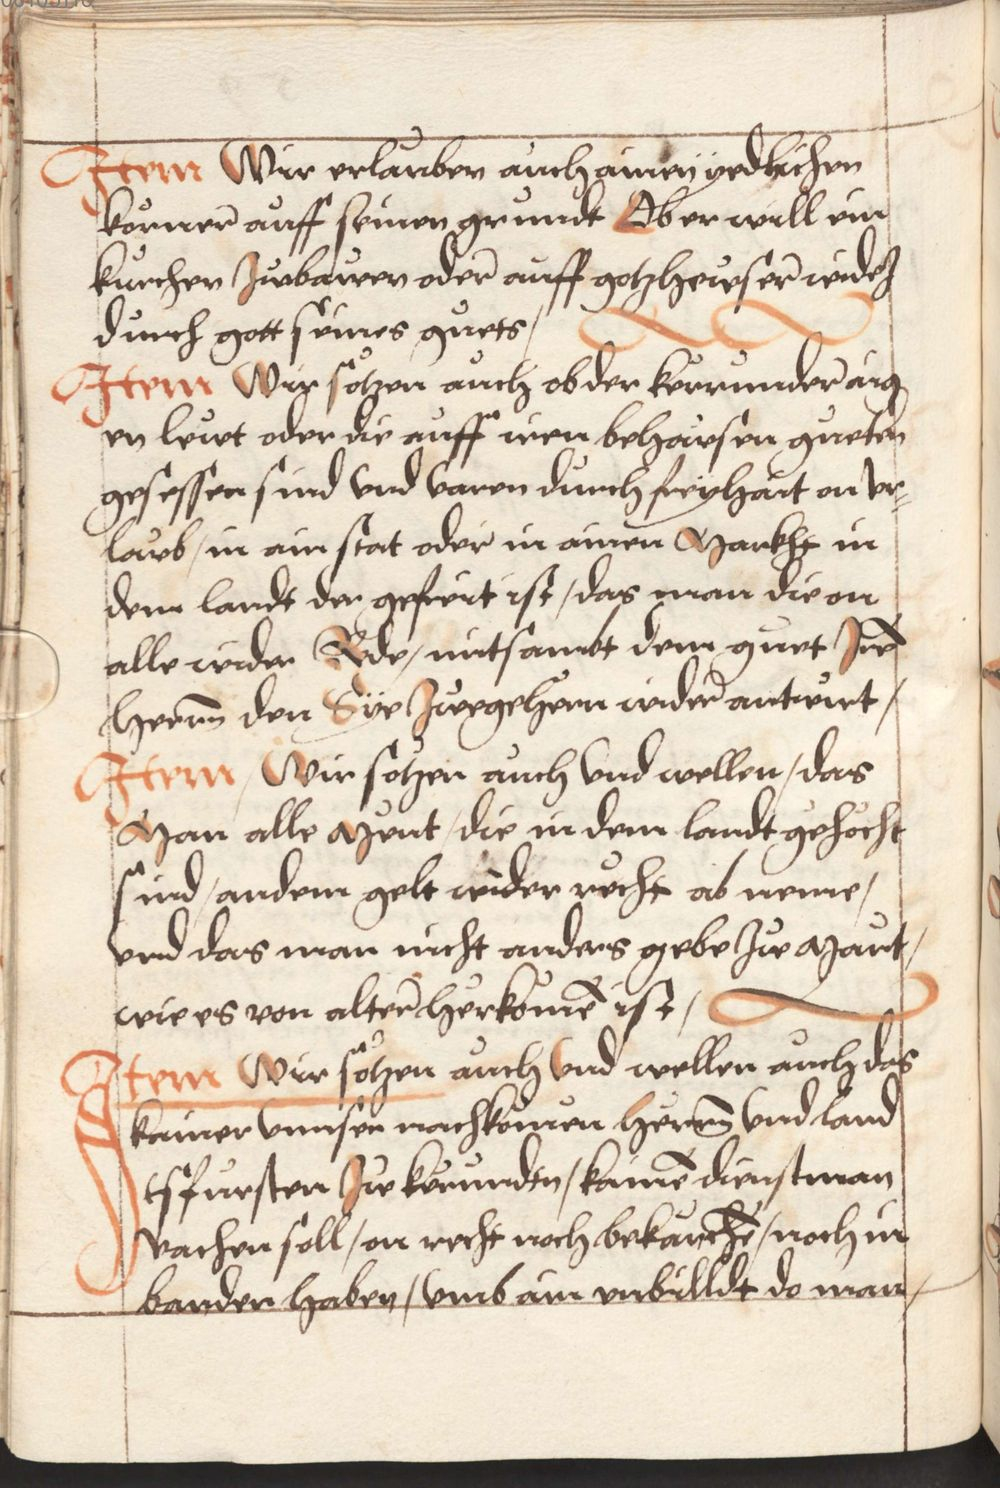 Item Wir erlauben auch ainem yedlichen
korner auff seinen grundt Ob er will ein
kirchen zwbauen oder auff gotzhewser widem
durch gott seines guets /
Item Wir sötzen auch ob der kerrnnder aig
en lewt oder die auff iren behawsen gueten
gesessen sind vnd varen durch freyhait on vr„
laub / in ain stat oder in ainen Markht in
dem landt der gefreit ist / das man die on
alle wider Rede / mitsambt dem guet Irē
herrn den Sye zwegehorn wider antwurt /
Item / Wir sötzen auch vnd wellen / das
Man alle Meut / die in dem landt gehöcht
sind / an dem gelt wider recht ab neme /
vnd das man nicht anders gebe zw Maut /
wie es von alter herkomē ist /
Item Wir sötzen auch vnd wellen auch das
kainer vnnser nachkomen herrn vnd land
tsfursten zw kerrndtn / kainē dienstman
vachen soll / on recht noch bekarchē / noch in
banden haben / vmb ain vnbilldt do man /